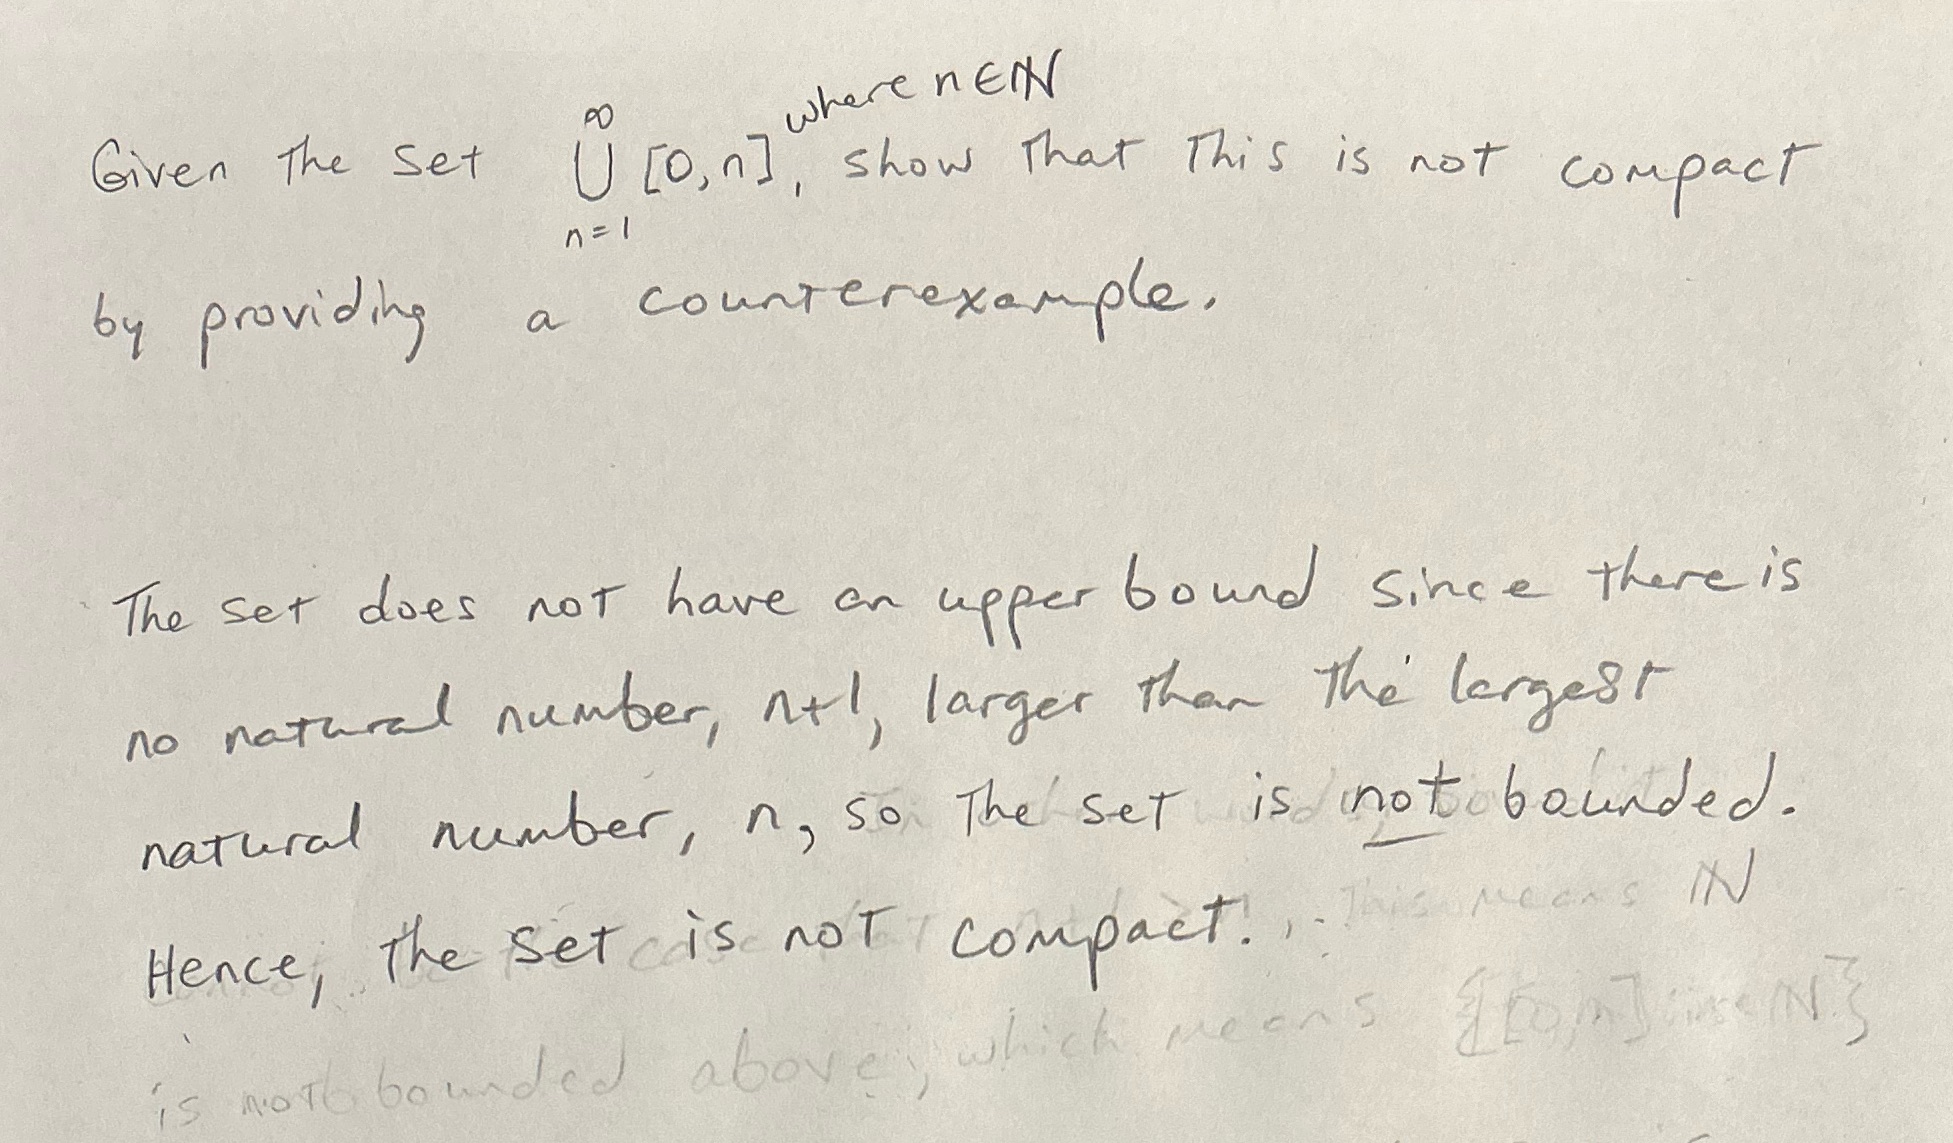 Given the set ∞ ⋃ n=1 [0,n], where n∈ℕ show that this is not compact
by providing a counterexample.
The set does not have an upper bound since there is
no natural number, n+1, larger than the largest
natural number, n, so the set is not bounded.
Hence, the set is not compact.
This means ℕ
is not bounded above, which means {[0,n] : n∈ℕ}